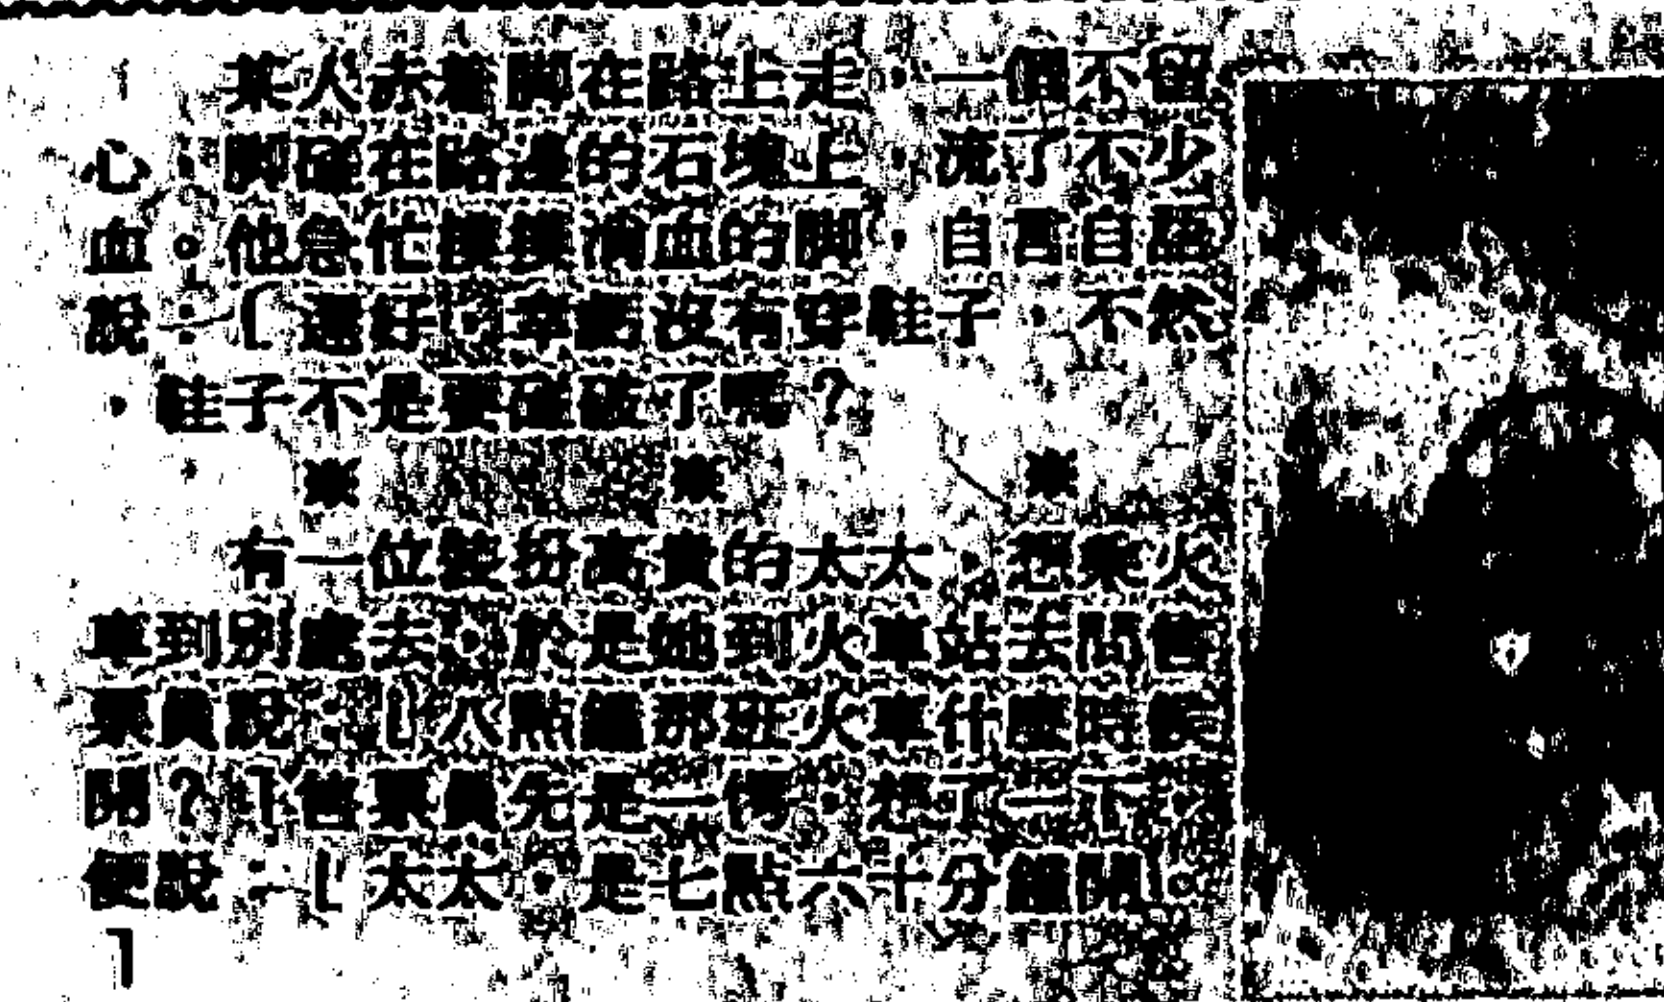 某人赤着脚在路上走,一個不留
心,脚碰在路邊的石塊上,流了不少
血。他急忙摸摸淌血的脚,自言自語
說:「還好,幸虧沒有穿鞋子,不然
,鞋子不是要碰破了嗎?
※ ※ ※
有一位裝扮高貴的太太,想乘火
車到別處去,於是她到火車站去問售
票員說:「八點鐘那班火車什麼時候
開?」售票員先是一愕,想了一下,
便說:「太太,是七點六十分鐘開。
」